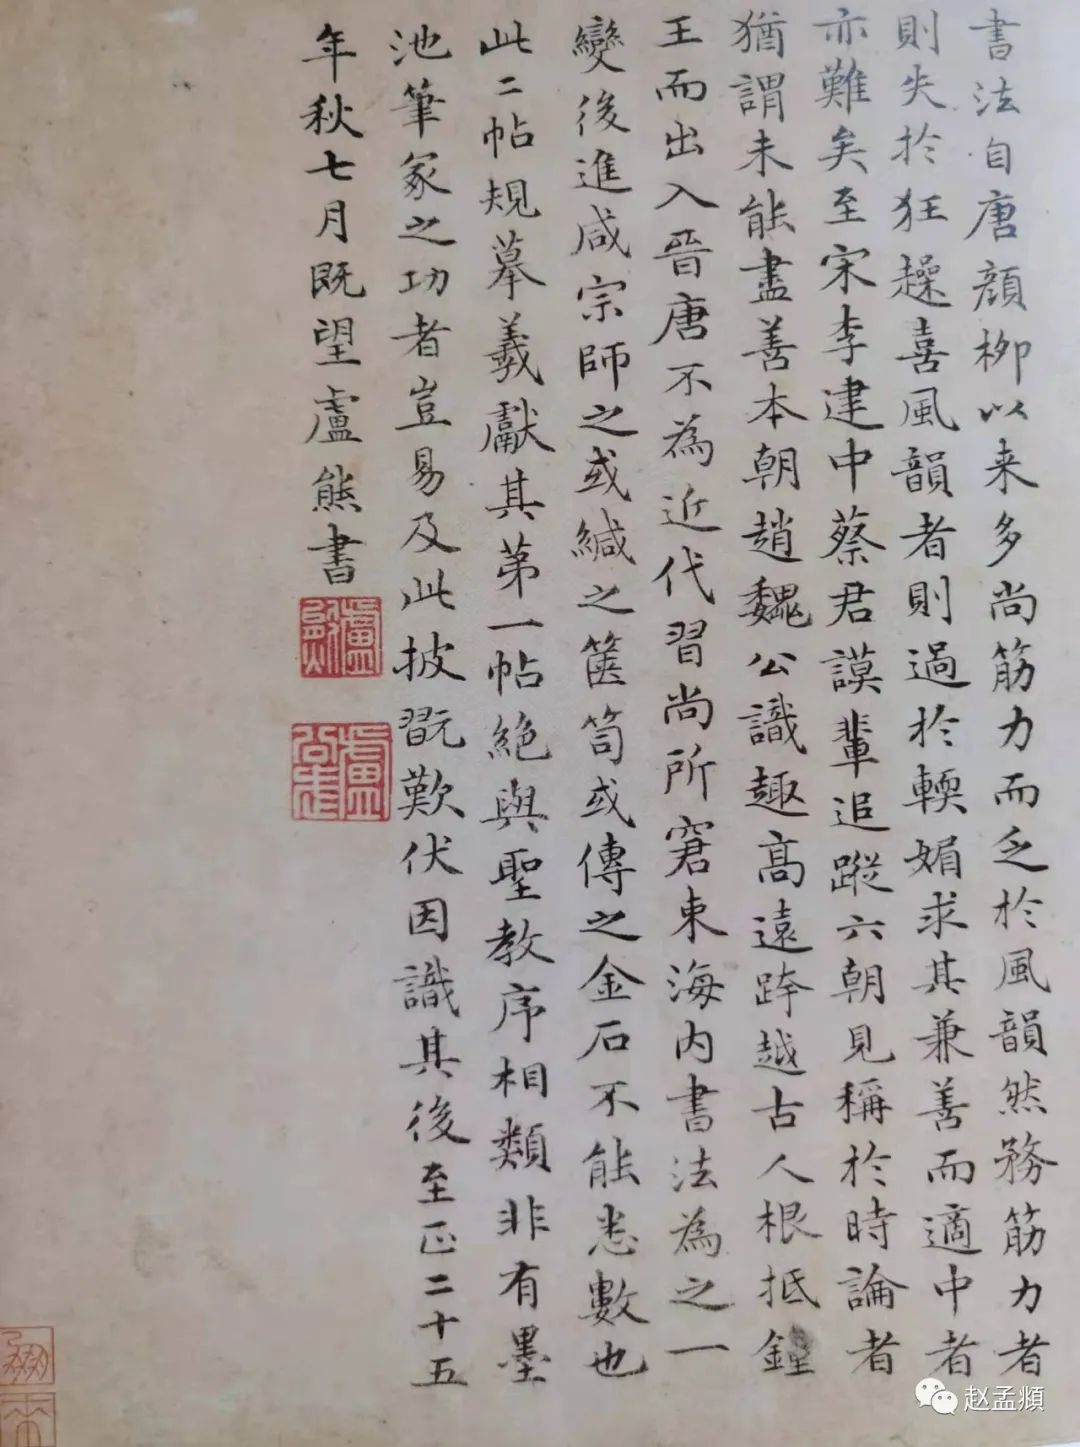 書法自唐顔柳以来多尚筋力而乏於風韻然務筋力者
則失於狂躁喜風韻者則過於輭媚求其兼善而適中者
亦難矣至宋李建中蔡君謨輩追蹤六朝見稱於時論者
猶謂未能盡善本朝趙魏公識趣高遠跨越古人根抵鍾
王而出入晉唐不為近代習尚所窘東海内書法為之一
變後進咸宗師之或緘之篋笥或傳之金石不能悉數也
此二帖規摹羲獻其第一帖絶與聖教序相類非有墨
池筆冢之功者豈易及此披翫歎伏因識其後至正二十五
年秋七月既望盧熊書
赵孟頫